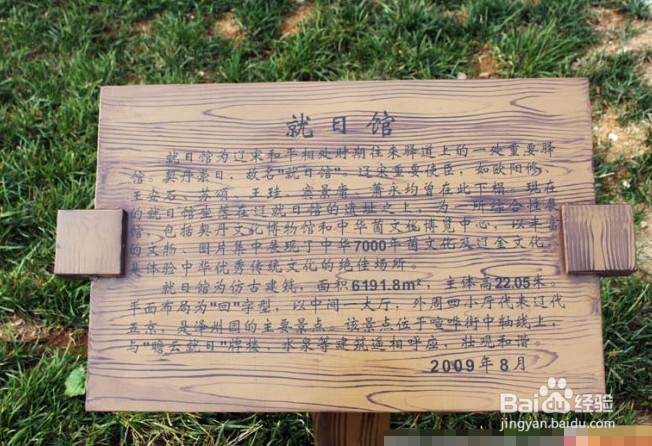 就日馆
就日馆为辽宋和平相处时期往来驿道上的一处重要驿
馆。契丹崇日，故名"就日馆"。辽宋重要使臣，如欧阳修、
王安石、苏颂、王珪、窦景庸、萧永均曾在此下榻。现在
的就日馆坐落在辽就日馆的遗址之上，为一所综合性展
馆，包括契丹文化博物馆和中华菌文化博览中心，以丰富
的文物、图片集中展现了中华7000年菌文化及辽金文化。
是体验中华优秀传统文化的绝佳场所。
就日馆为仿古建筑，面积6191.8m²，主体高22.05米。
平面布局为"回"字型，以中间一大厅，外周四小厅代表辽代
五京，是泽州园的主要景点。该景点位于喧哗街中轴线上，
与"瞻云就日"牌楼、水泉等建筑遥相呼应，壮观和谐。
2009年8月
Baidu经验
jingyan.baidu.com